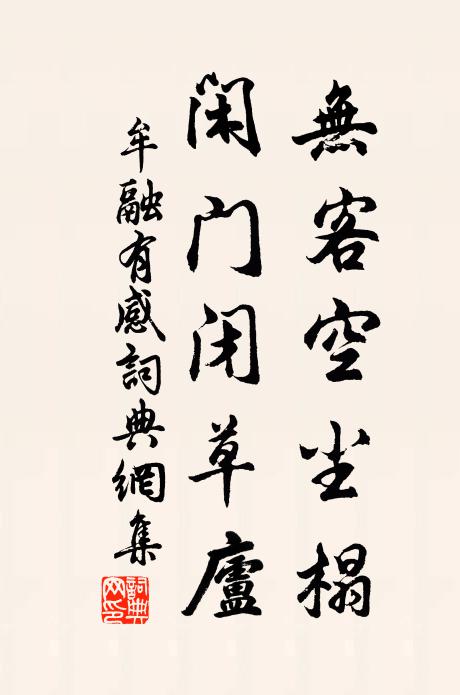 無客空尘榻
闲门闭草廬
牟融有感詞典網集
詞典网印